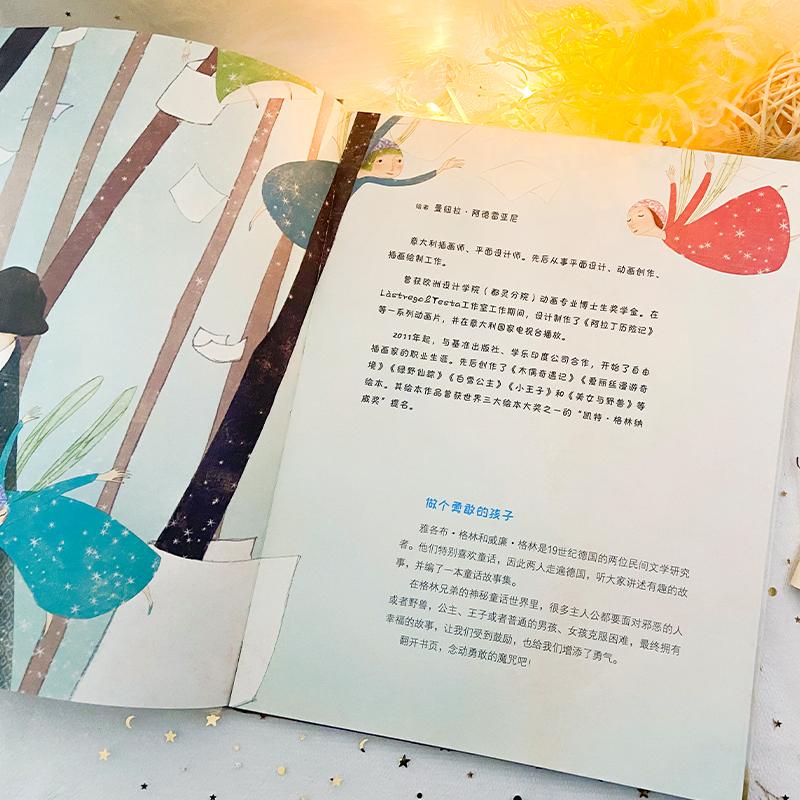 绘者 曼纽拉·阿德雷亚尼
意大利插画师、平面设计师。先后从事平面设计、动画创作、
插画绘制工作。
曾获欧洲设计学院（都灵分院）动画专业博士生奖学金。在
Làstrego&Testa工作室工作期间，设计制作了《阿拉丁历险记》
等一系列动画片，并在意大利国家电视台播放。
2011年起，与基准出版社、学乐印度公司合作，开始了自由
插画家的职业生涯。先后创作了《木偶奇遇记》《爱丽丝漫游奇
境》《绿野仙踪》《白雪公主》《小王子》和《美女与野兽》等
绘本。其绘本作品曾获世界三大绘本大奖之一的“凯特·格林纳
威奖”提名。
做个勇敢的孩子
雅各布·格林和威廉·格林是19世纪德国的两位民间文学研究
者。他们特别喜欢童话，因此两人走遍德国，听大家讲述有趣的故
事，并编了一本童话故事集。
在格林兄弟的神秘童话世界里，很多主人公都要面对邪恶的人
或者野兽，公主、王子或者普通的男孩、女孩克服困难，最终拥有
幸福的故事，让我们受到鼓励，也给我们增添了勇气。
翻开书页，念动勇敢的魔咒吧！